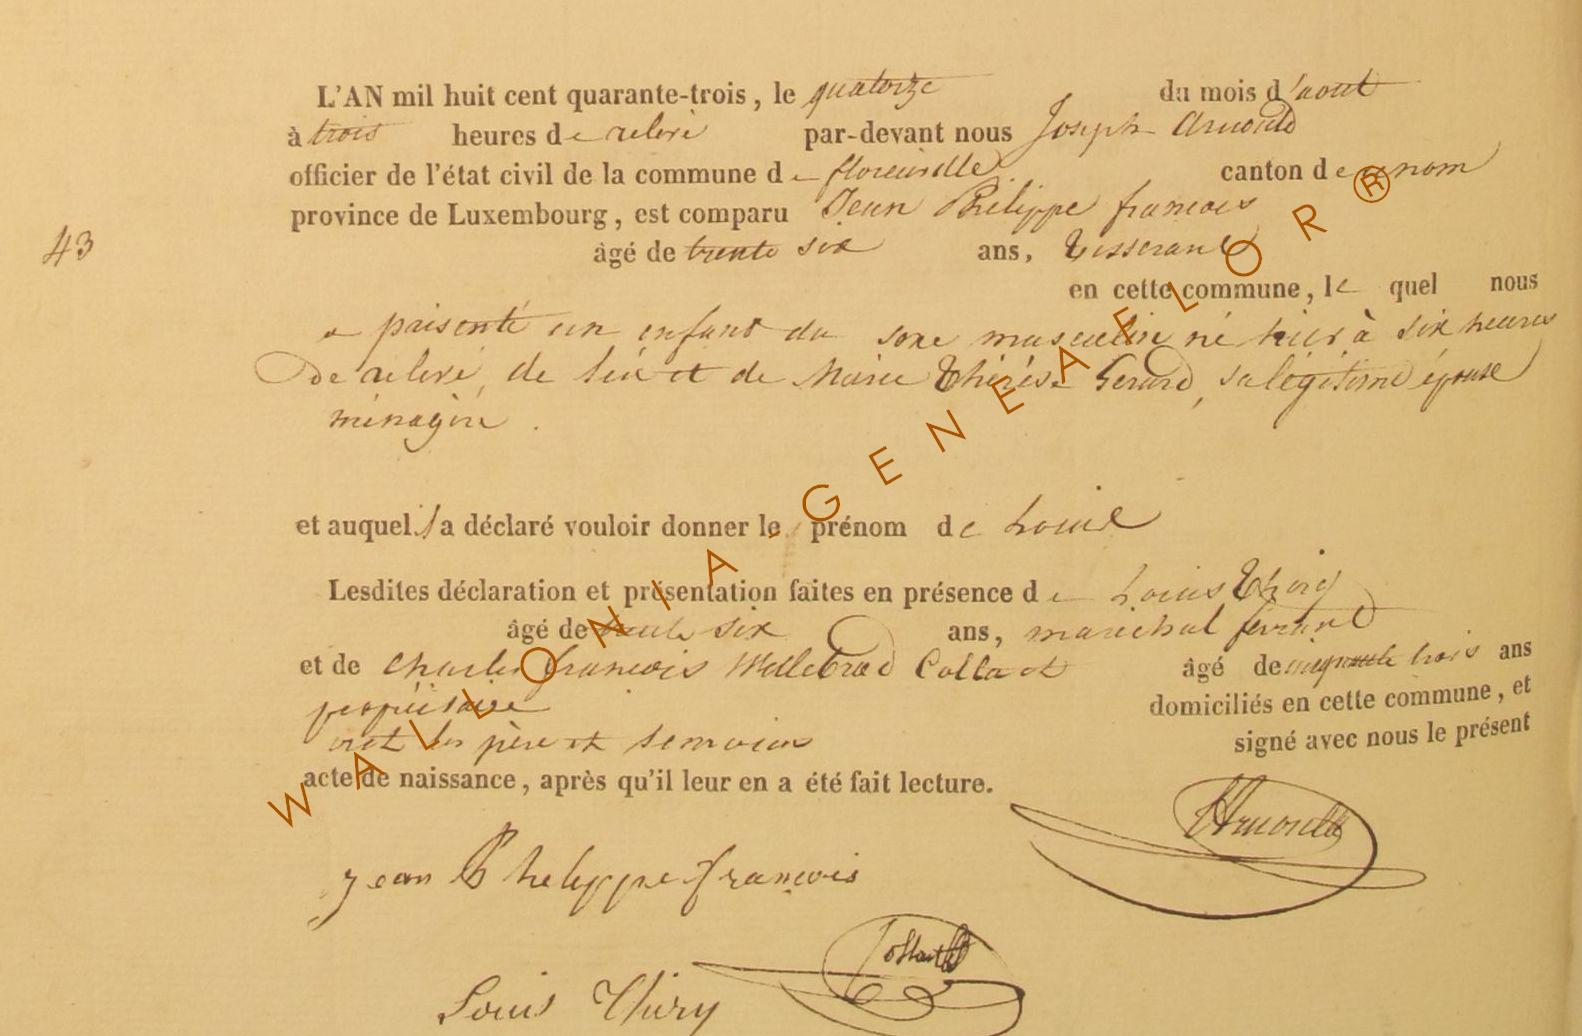 L'AN mil huit cent quarante-trois, le quatorze du mois d'aout
à trois heures de relevé par-devant nous Joseph Arnould
officier de l'état civil de la commune de florenville canton de ce nom
province de Luxembourg, est comparu Jean Philippe francois
âgé de trente six ans, tisserand
43
en cette commune, le quel nous
a présenté un enfant du sexe masculin né hier à six heures
De relevé, de lui et de Marie Thérèse Gerard, sa légitime épouse
ménagère.
et auquel il a déclaré vouloir donner le prénom de Louis
Lesdites déclaration et présentation faites en présence de Louis Thiry
âgé de trente six ans, maréchal ferrant
et de Charles francois Willebrod Collart âgé de cinquante trois ans
propriétaire domiciliés en cette commune, et
ont les père et temoins signé avec nous le présent
acte de naissance, après qu'il leur en a été fait lecture.
Arnould
jean Phelippe francois
Collart
Louis Thiry
WALLONIA-GENEAFLOR®